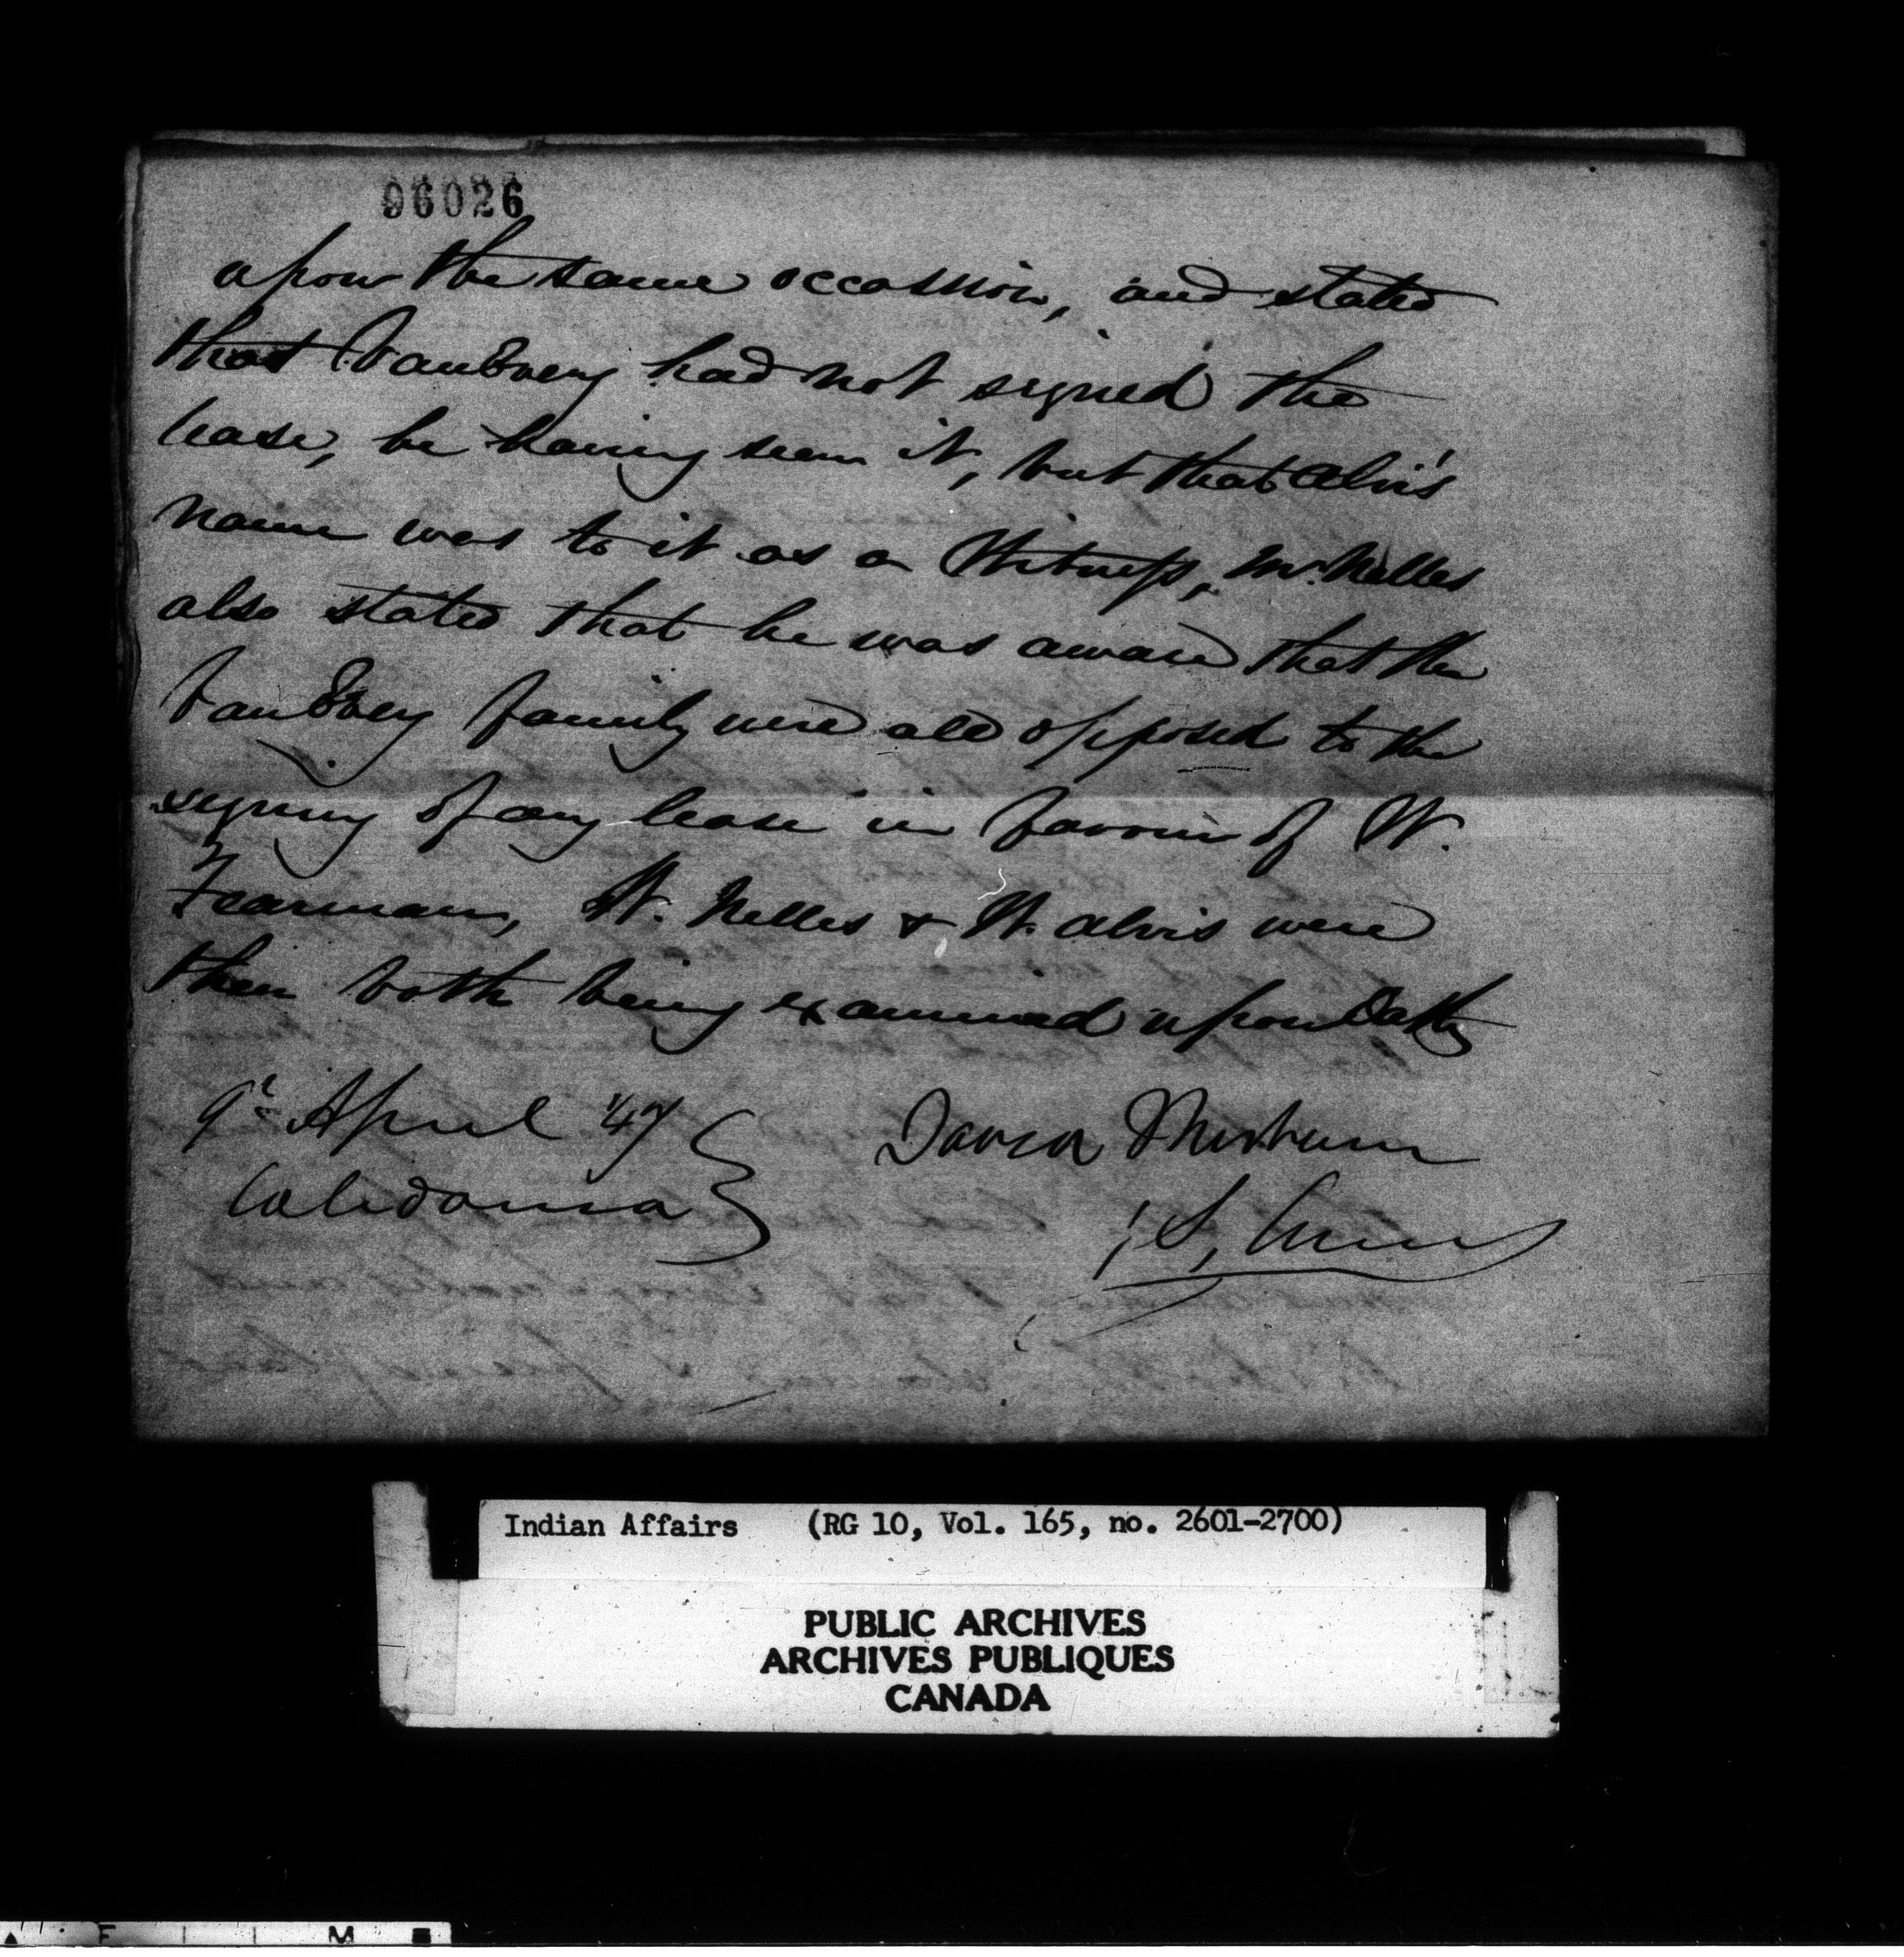 96026
upon the same occassion, and stated
that VanEvery had not signed the
lease, he having seen it, but that Alvis'
name was to it as a Witness, Mr. Nelles
also stated that he was aware that the
VanEvery family were all opposed to the
signing of any lease in favour of W.
Fearman, W. Nelles & W. Alvis were
then both being examined upon Oath
9th April '47
Caledonia
David
Indian Affairs (RG 10, Vol. 165, no. 2601-2700)
PUBLIC ARCHIVES
ARCHIVES PUBLIQUES
CANADA
F M